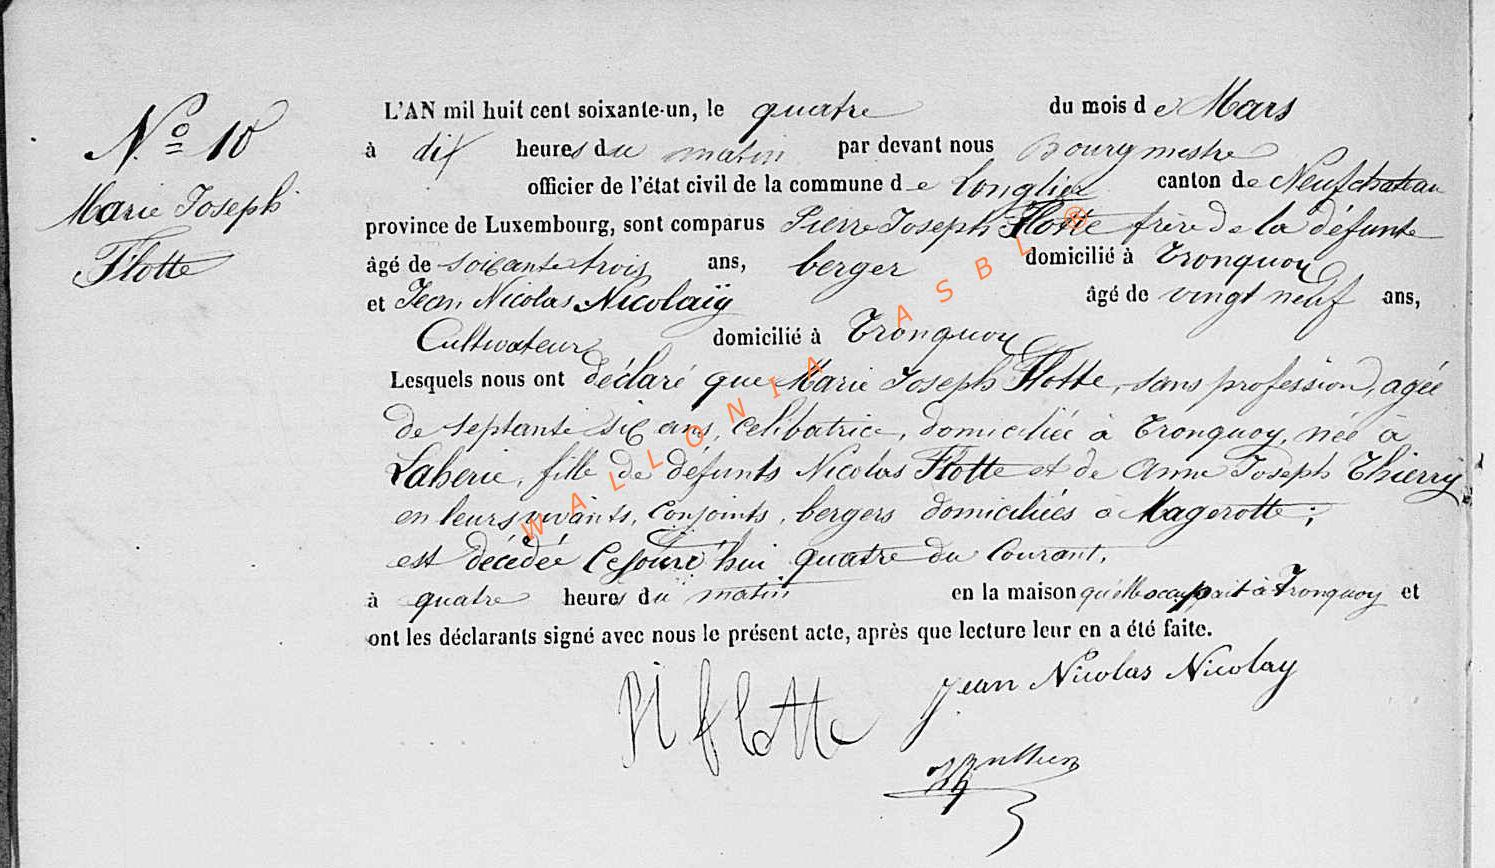 N.º 10
Marie Joseph
Flotte
L'AN mil huit cent soixante-un, le quatre du mois de Mars
à dix heures du matin par devant nous Bourgmestre
officier de l'état civil de la commune de Longlier canton de Neufchateau
province de Luxembourg, sont comparus Pierre Joseph Flotte frère de la défunte
âgé de soixante trois ans, berger domicilié à Tronquoy
et Jean Nicolas Nicolaÿ âgé de vingt neuf ans,
Cultivateur domicilié à Tronquoy
Lesquels nous ont déclaré que Marie Joseph Flotte, sans profession, agée
de septante six ans, célibatrice, domiciliée à Tronquoy, née à
Laherie, fille de défunts Nicolas Flotte et de Anne Joseph Thierry
en leurs vivants, conjoints, bergers domiciliés à Magerotte;
est décédée cejourd'hui quatre du courant,
à quatre heures du matin en la maison qu'elle occuppait à Tronquoy et
ont les déclarants signé avec nous le présent acte, après que lecture leur en a été faite.
Jean Nicolas Nicolay
P i flotte
WALLONIA ASBL ®